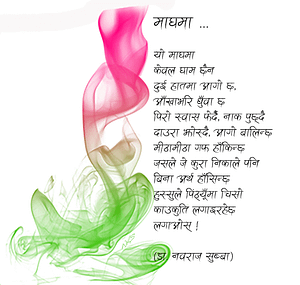 माघमा ...
यो माघमा
केवल घाम छैन
दुई हातमा आगो छ,
आँखाभरि धुँवा छ
पिरो स्वास फेर्दै, नाक पुछ्दै
दाउरा झोस्दै, आगो बालिन्छ
मीठामीठा गफ हाँकिन्छ
जसले जे कुरा निकाले पनि
बिना अर्थ हाँसिन्छ
हुस्सुले पिठ्यूँमा चिसो
काउकुति लगाइरहेछ
लगाओस् !
(डा. नवराज सुब्बा)